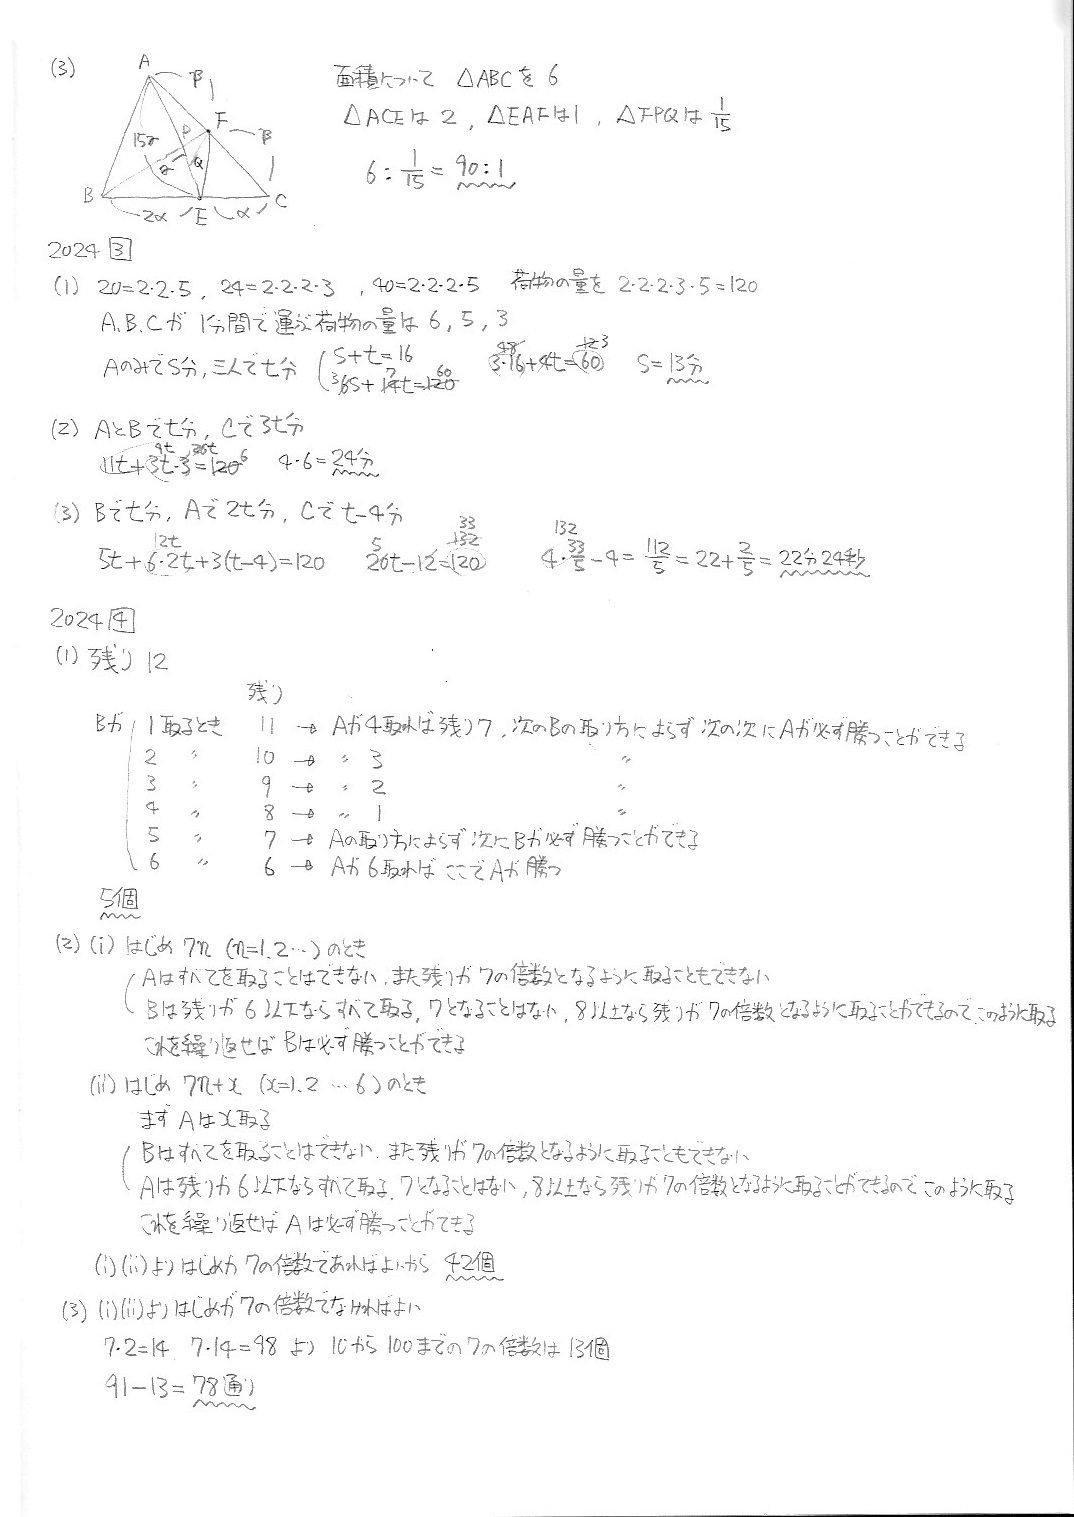 (3)
A
B
C
E
F
P
Q
β
β
2α
α
面積について △ABCを 6
△ACEは 2, △EAFは1, △FPQは 1/15
6 : 1/15 = 90 : 1
2024 3
(1) 20=2・2・5, 24=2・2・2・3, 40=2・2・2・5 荷物の量を 2・2・2・3・5=120
A.B.Cが 1分間で運ぶ荷物の量は 6, 5, 3
AのみでS分, 三人でt分
S+t=16
3・16+4t=60 S=13分
(2) AとBでt分, Cで3t分
11t+3t・3=120 4・6=24分
(3) Bでt分, Aで2t分, Cでt-4分
5t+6・2t+3(t-4)=120 20t-12=120 4・33/5-4=112/5=22+2/5=22分24秒
2024 4
(1) 残り 12
残り
Bが 1取るとき 11 → Aが4取れば残り7, 次のBの取り方によらず次の次にAが必ず勝つことができる
2 〃 10 → 〃 3 〃
3 〃 9 → 〃 2 〃
4 〃 8 → 〃 1 〃
5 〃 7 → Aの取り方によらず次にBが必ず勝つことができる
6 〃 6 → Aが6取ればここでAが勝つ
5個
(2) (i) はじめ 7n (n=1.2…) のとき
Aはすべてを取ることはできない, また残りが7の倍数となるように取ることもできない
Bは残りが6以下ならすべて取る, 7となることはない, 8以上なら残りが7の倍数となるように取ることができるのでこのように取る
これを繰り返せばBは必ず勝つことができる
(ii) はじめ 7n+x (x=1.2…6) のとき
まずAはx取る
Bはすべてを取ることはできない. また残りが7の倍数となるように取ることもできない
Aは残りが6以下ならすべて取る, 7となることはない, 8以上なら残りが7の倍数となるように取ることができるのでこのように取る
これを繰り返せばAは必ず勝つことができる
(i)(ii)よりはじめが7の倍数であればよいから 42個
(3) (i)(ii)よりはじめが7の倍数でなければよい
7・2=14 7・14=98 より 10から100までの7の倍数は13個
91-13=78通り